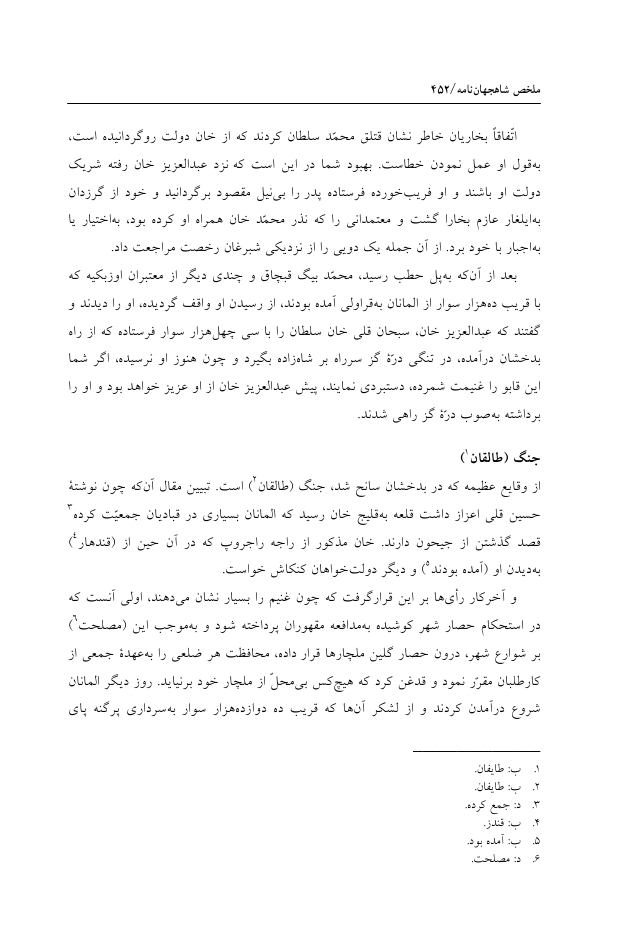 ملخص شاهجهان‌نامه/۴۵۲
اتّفاقاً بخاریان خاطر نشان قتلق محمّد سلطان کردند که از خان دولت روگردانیده است،
به‌قول او عمل نمودن خطاست. بهبود شما در این است که نزد عبدالعزیز خان رفته شریک
دولت او باشند و او فریب‌خورده فرستاده پدر را بی‌نیل مقصود برگردانید و خود از گرزدان
به‌ایلغار عازم بخارا گشت و معتمدانی را که نذر محمّد خان همراه او کرده بود، به‌اختیار یا
به‌اجبار با خود برد. از آن جمله یک دویی را از نزدیکی شبرغان رخصت مراجعت داد.
بعد از آن‌که به‌پل حطب رسید، محمّد بیگ قبچاق و چندی دیگر از معتبران اوزبکیه که
با قریب ده‌هزار سوار از المانان به‌قراولی آمده بودند، از رسیدن او واقف گردیده، او را دیدند و
گفتند که عبدالعزیز خان، سبحان قلی خان سلطان را با سی چهل‌هزار سوار فرستاده که از راه
بدخشان درآمده، در تنگی درّهٔ گز سرراه بر شاه‌زاده بگیرد و چون هنوز او نرسیده، اگر شما
این قابو را غنیمت شمرده، دستبردی نمایند، پیش عبدالعزیز خان از او عزیز خواهد بود و او را
برداشته به‌صوب درّهٔ گز راهی شدند.
جنگ (طالقان۱)
از وقایع عظیمه که در بدخشان سانح شد، جنگ (طالقان۲) است. تبیین مقال آن‌که چون نوشتهٔ
حسین قلی اعزاز داشت قلعه به‌قلیج خان رسید که المانان بسیاری در قبادیان جمعیّت کرده۳
قصد گذشتن از جیحون دارند. خان مذکور از راجه راجروپ که در آن حین از (قندهار۴)
به‌دیدن او (آمده بودند۵) و دیگر دولت‌خواهان کنکاش خواست.
و آخرکار رأی‌ها بر این قرارگرفت که چون غنیم را بسیار نشان می‌دهند، اولی آنست که
در استحکام حصار شهر کوشیده به‌مدافعه مقهوران پرداخته شود و به‌موجب این (مصلحت۶)
بر شوارع شهر، درون حصار گلین ملچارها قرار داده، محافظت هر ضلعی را به‌عهدهٔ جمعی از
کارطلبان مقرّر نمود و قدغن کرد که هیچ‌کس بی‌محلّ از ملچار خود برنیاید. روز دیگر المانان
شروع درآمدن کردند و از لشکر آن‌ها که قریب ده دوازده‌هزار سوار به‌سرداری پرگنه پای
۱. ب: طایفان.
۲. ب: طایفان.
۳. د: جمع کرده.
۴. ب: قندز.
۵. ب: آمده بود.
۶. د: مصلحت.